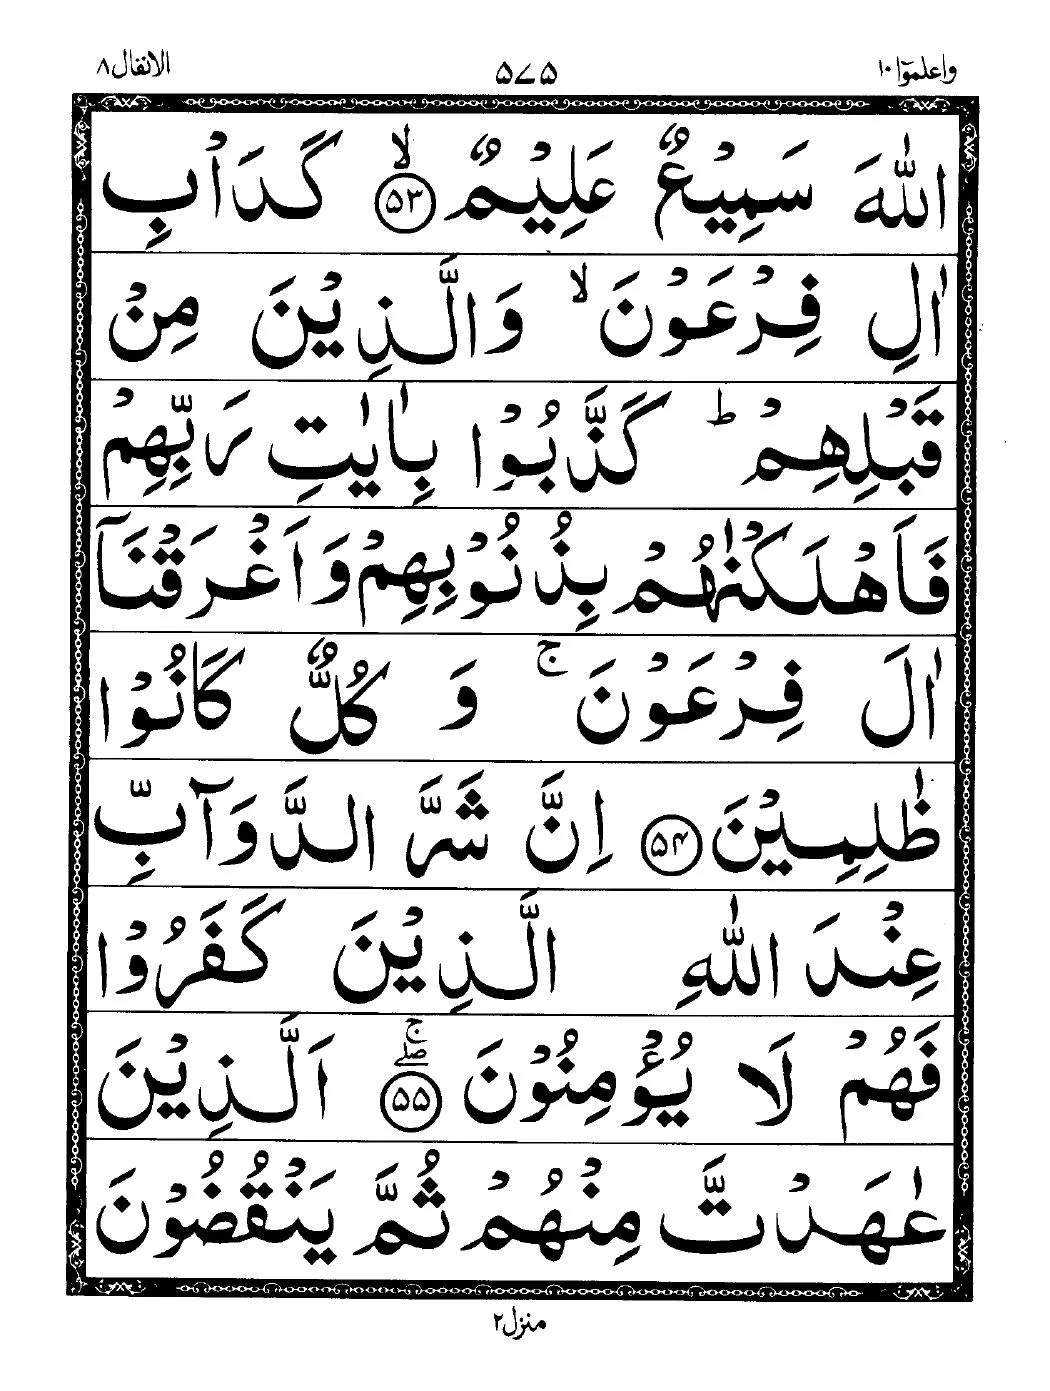 واعلموٓا ١٠
۵۷۵
الانفال ٨
اللّٰهَ سَمِيْعٌ عَلِيْمٌ ۙ‏﴿۵۳﴾ كَدَاْبِ
اٰلِ فِرْعَوْنَ ۙ وَالَّذِيْنَ مِنْ
قَبْلِهِمْ ؕ كَذَّبُوْا بِاٰيٰتِ رَبِّهِمْ
فَاَهْلَكْنٰهُمْ بِذُنُوْبِهِمْ وَاَغْرَقْنَاۤ
اٰلَ فِرْعَوْنَ ۚ وَ كُلٌّ كَانُوْا
ظٰلِمِيْنَ ﴿۵۴﴾ اِنَّ شَرَّ الدَّوَآبِّ
عِنْدَ اللّٰهِ الَّذِيْنَ كَفَرُوْا
فَهُمْ لَا يُؤْمِنُوْنَ ۖۚ ﴿۵۵﴾ اَلَّذِيْنَ
عٰهَدْتَّ مِنْهُمْ ثُمَّ يَنْقُضُوْنَ
منزل ٢